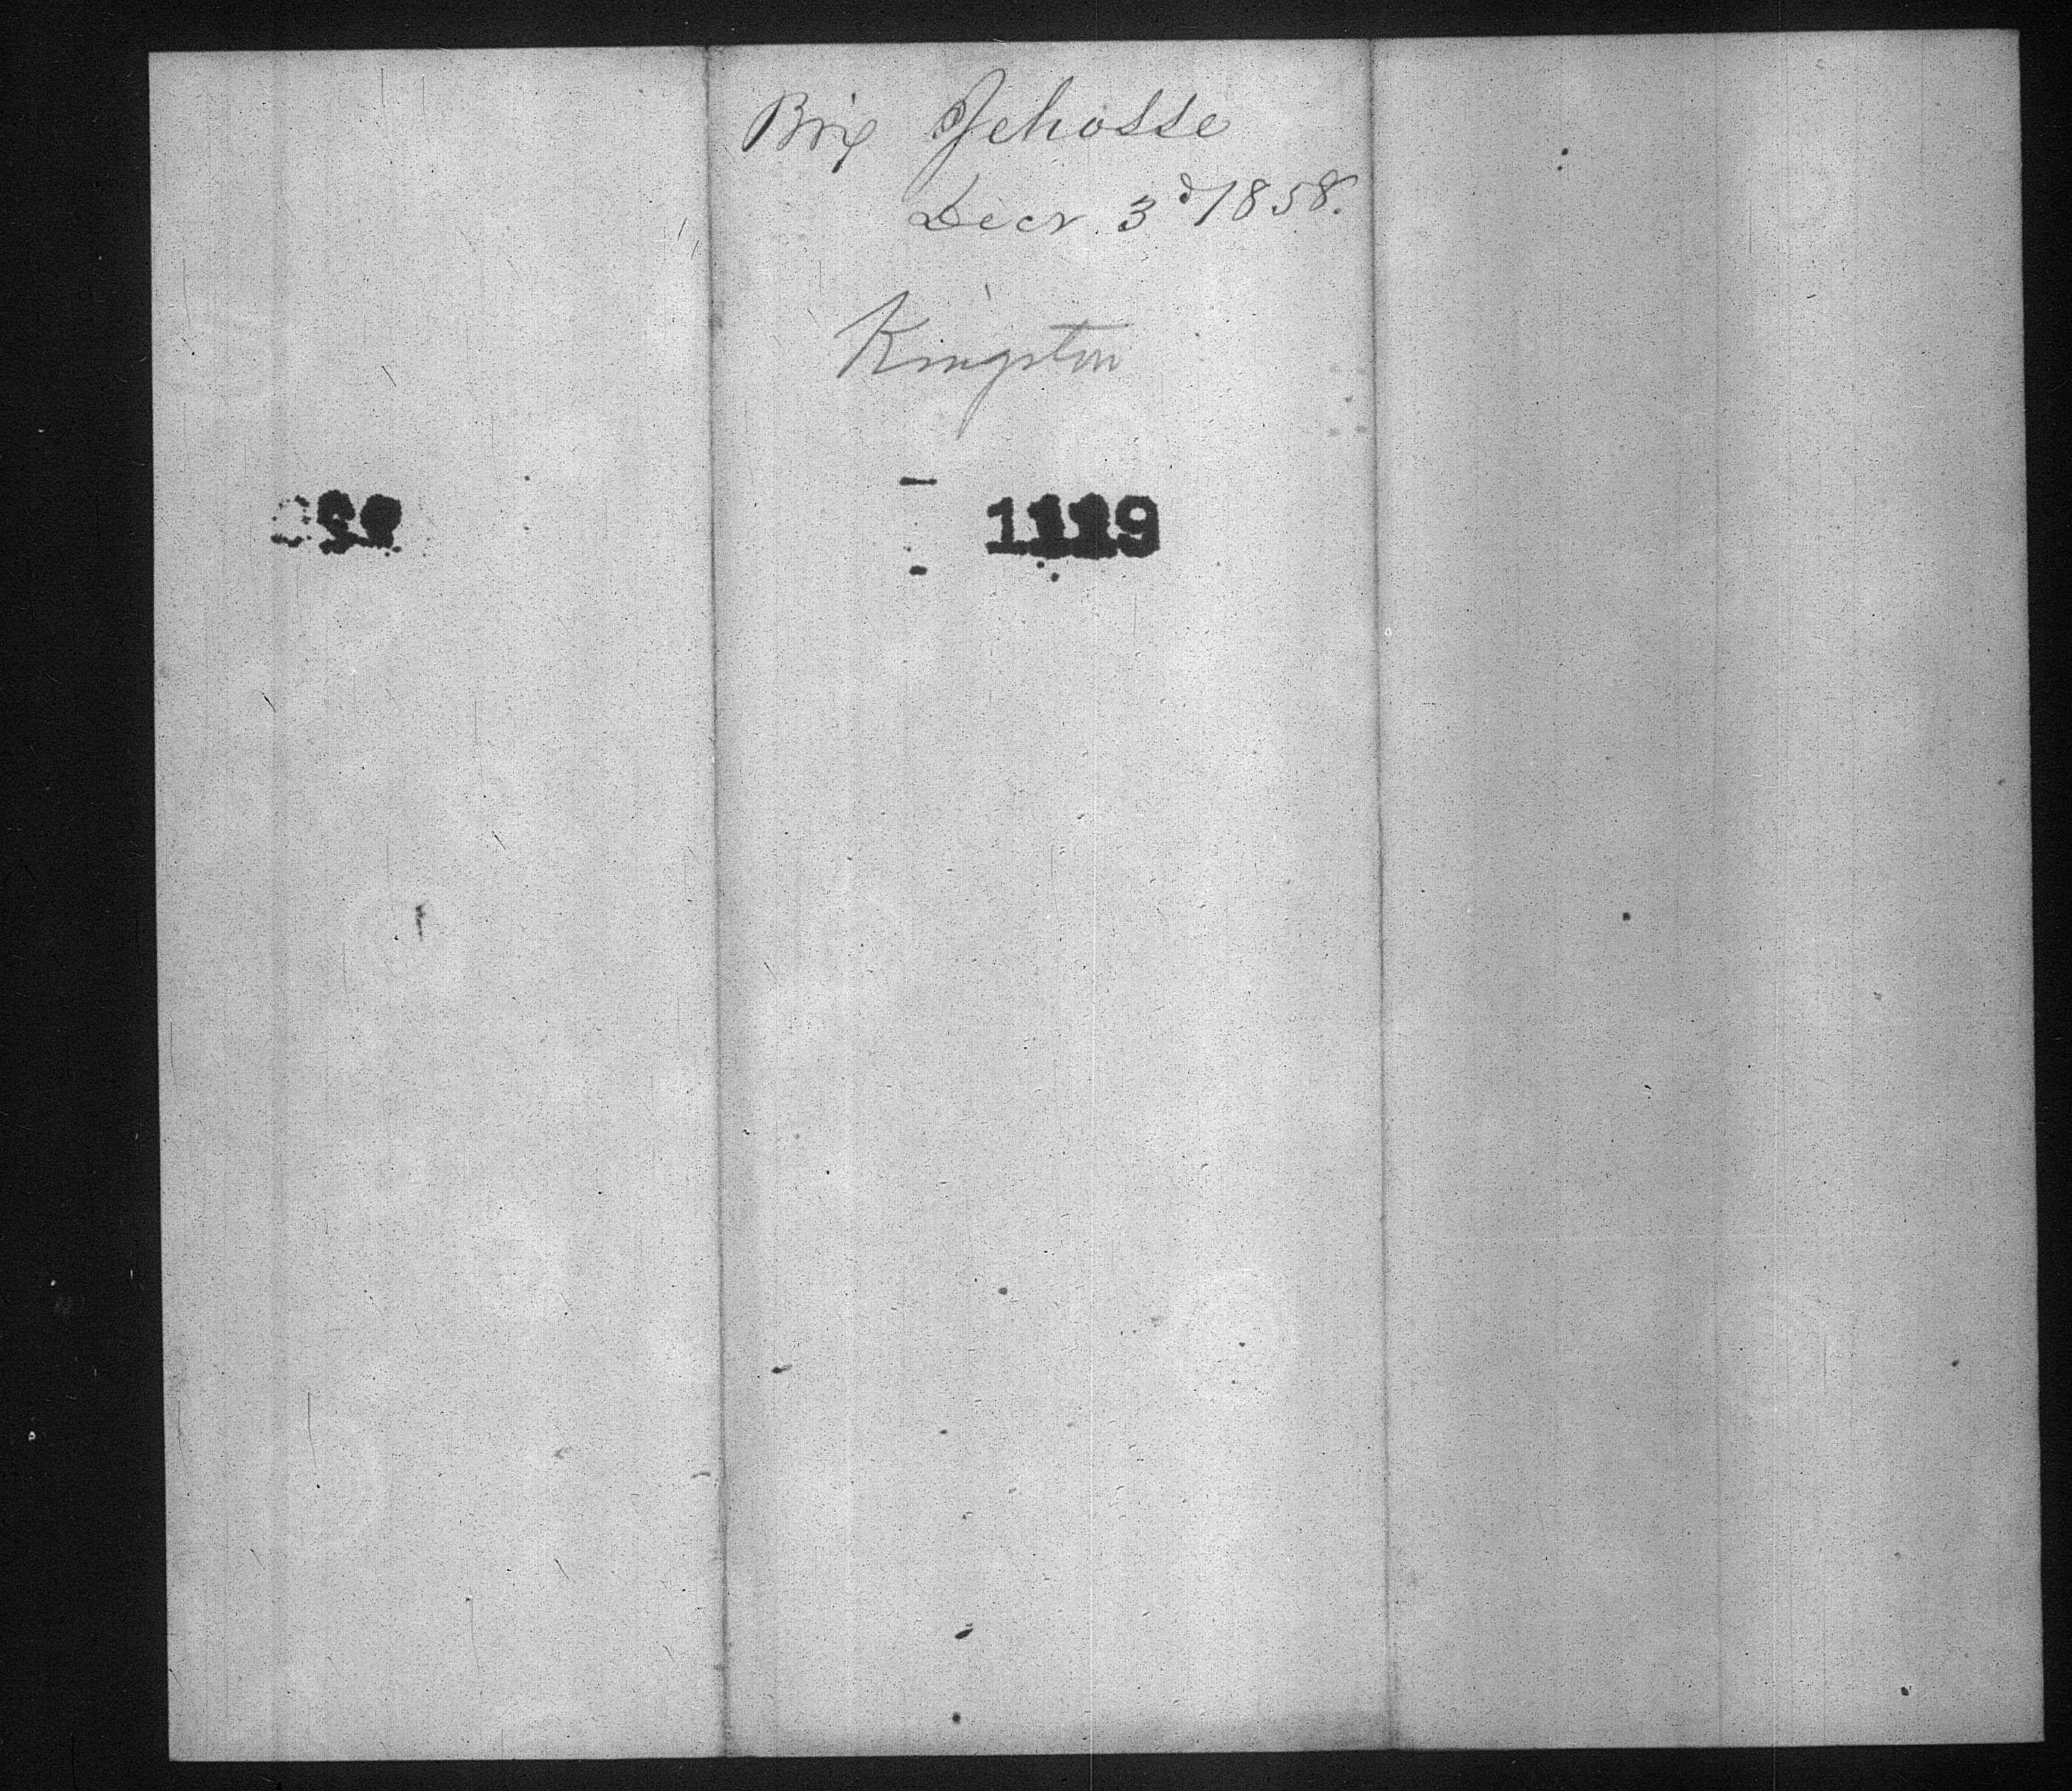 Brig Jehosse
Decr. 3d 1858.
Kingston
1119